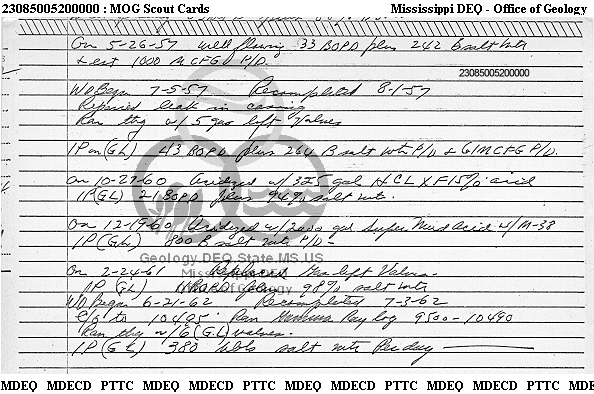 23085005200000 : MOG Scout Cards Mississippi DEQ - Office of Geology
On 5-26-57 well flowing 33 BOPD plus 242 B salt wtr
& est 1000 MCFGD P/D.
23085005200000
WO Began 7-5-57 Recompleted 8-1-57
Repaired leak in casing
Ran tbg w/ 5 gas lift valves
IP on (GL) 43 BOPD plus 264 B salt wtr P/D & 61 MCFG P/D.
On 10-27-60 Acidized w/ 325 gal HCL X F 15% acid
IP (GL) 21 BOPD plus 94% salt wtr.
On 12-19-60 Acidized w/ 2000 gal Super Mud Acid w/ M-38
IP (GL) 800 B salt wtr P/D -
Geology.DEQ.State.MS.US
Mississippi DEQ
Office of Geology
On 2-24-61 Replaced Gas-lift Valves -
IP (GL) BOPD plus 98% salt wtr
WO Began 6-21-62 Recompleted 7-3-62
C/O to 10495' Ran Gamma Ray log 9500-10490
Ran tbg w/ 6 (G.L) valves.
IP (GL) 380 bbls salt wtr Per day
MDEQ MDECD PTTC MDEQ MDECD PTTC MDEQ MDECD PTTC MDEQ MDECD PTTC MDEQ